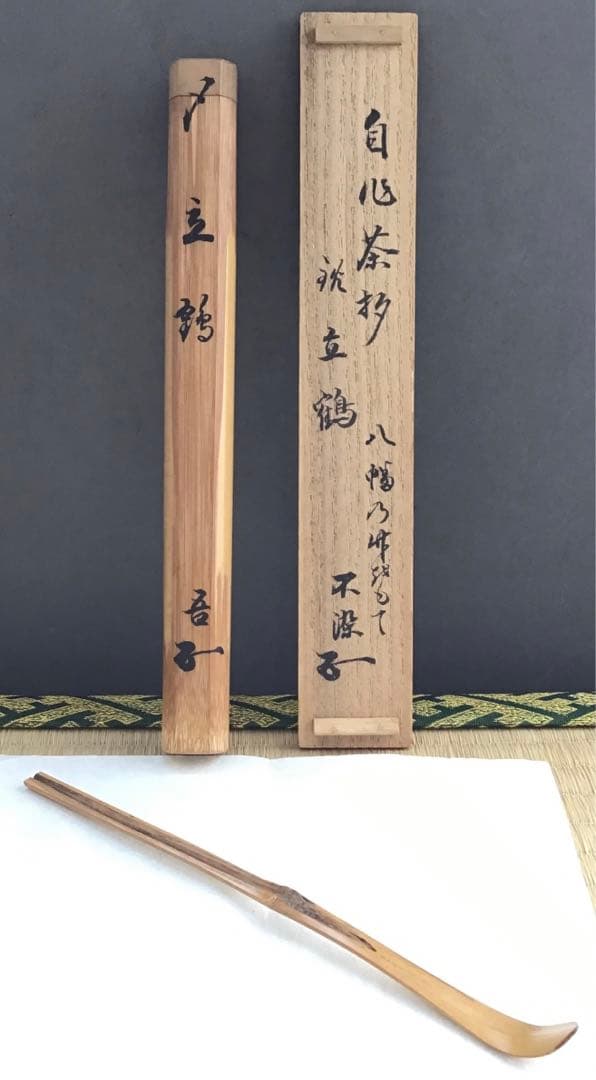 自作茶杓
銘 立鶴
八幡乃竹をもて
不染子
〆 立鶴 吾子